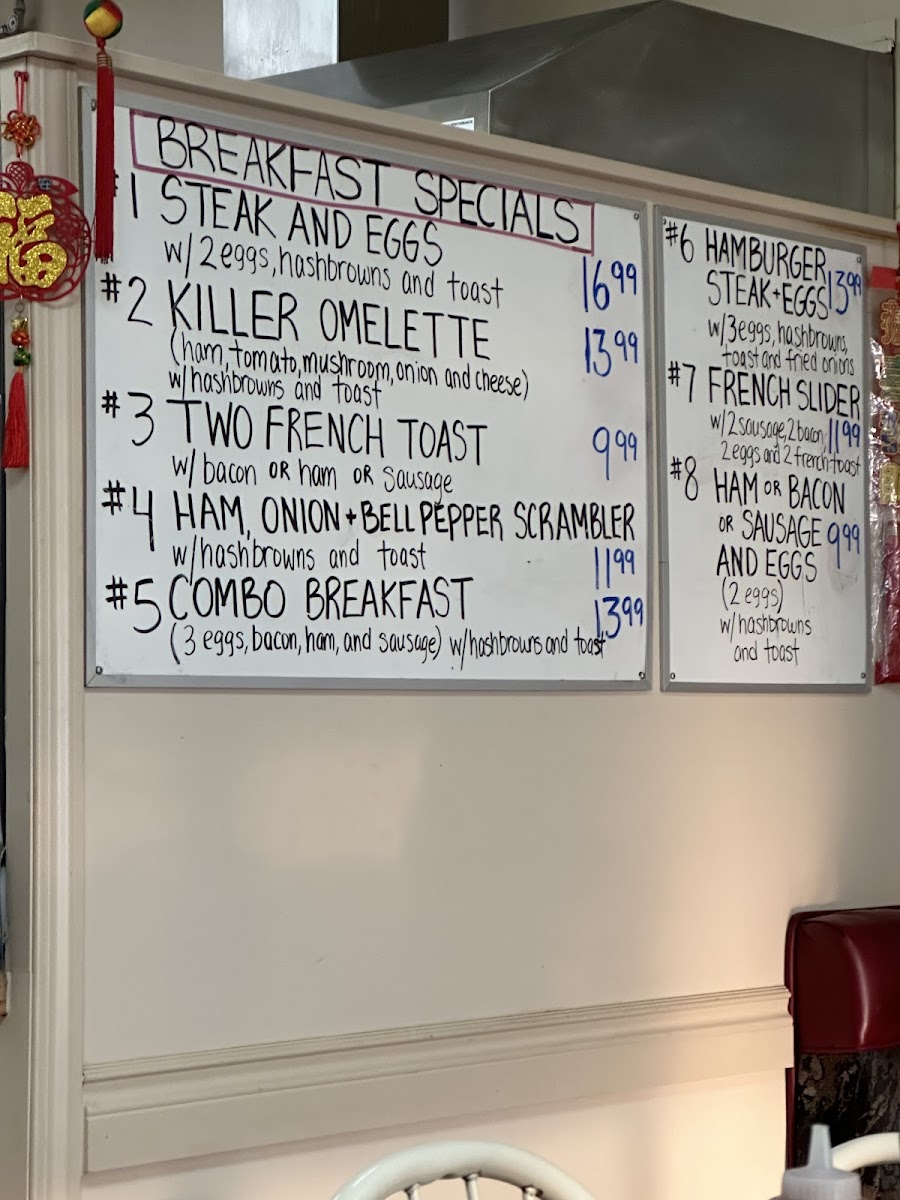 BREAKFAST SPECIALS
#1 STEAK AND EGGS
w/2eggs, hashbrowns and toast 16⁹⁹
#2 KILLER OMELETTE
(ham, tomato, mushroom, onion and cheese) 13⁹⁹
w/hashbrowns and toast
#3 TWO FRENCH TOAST 9⁹⁹
w/bacon OR ham OR sausage
#4 HAM, ONION + BELL PEPPER SCRAMBLER
w/hashbrowns and toast 11⁹⁹
#5 COMBO BREAKFAST 13⁹⁹
(3 eggs, bacon, ham, and sausage) w/hashbrowns and toast
#6 HAMBURGER
STEAK+EGGS 13⁹⁹
w/3eggs, hashbrowns,
toast and fried onions
#7 FRENCH SLIDER
w/2sausage, 2bacon, 11⁹⁹
2eggs and 2 french toast
#8 HAM OR BACON
OR SAUSAGE 9⁹⁹
AND EGGS
(2 eggs)
w/hashbrowns
and toast
福